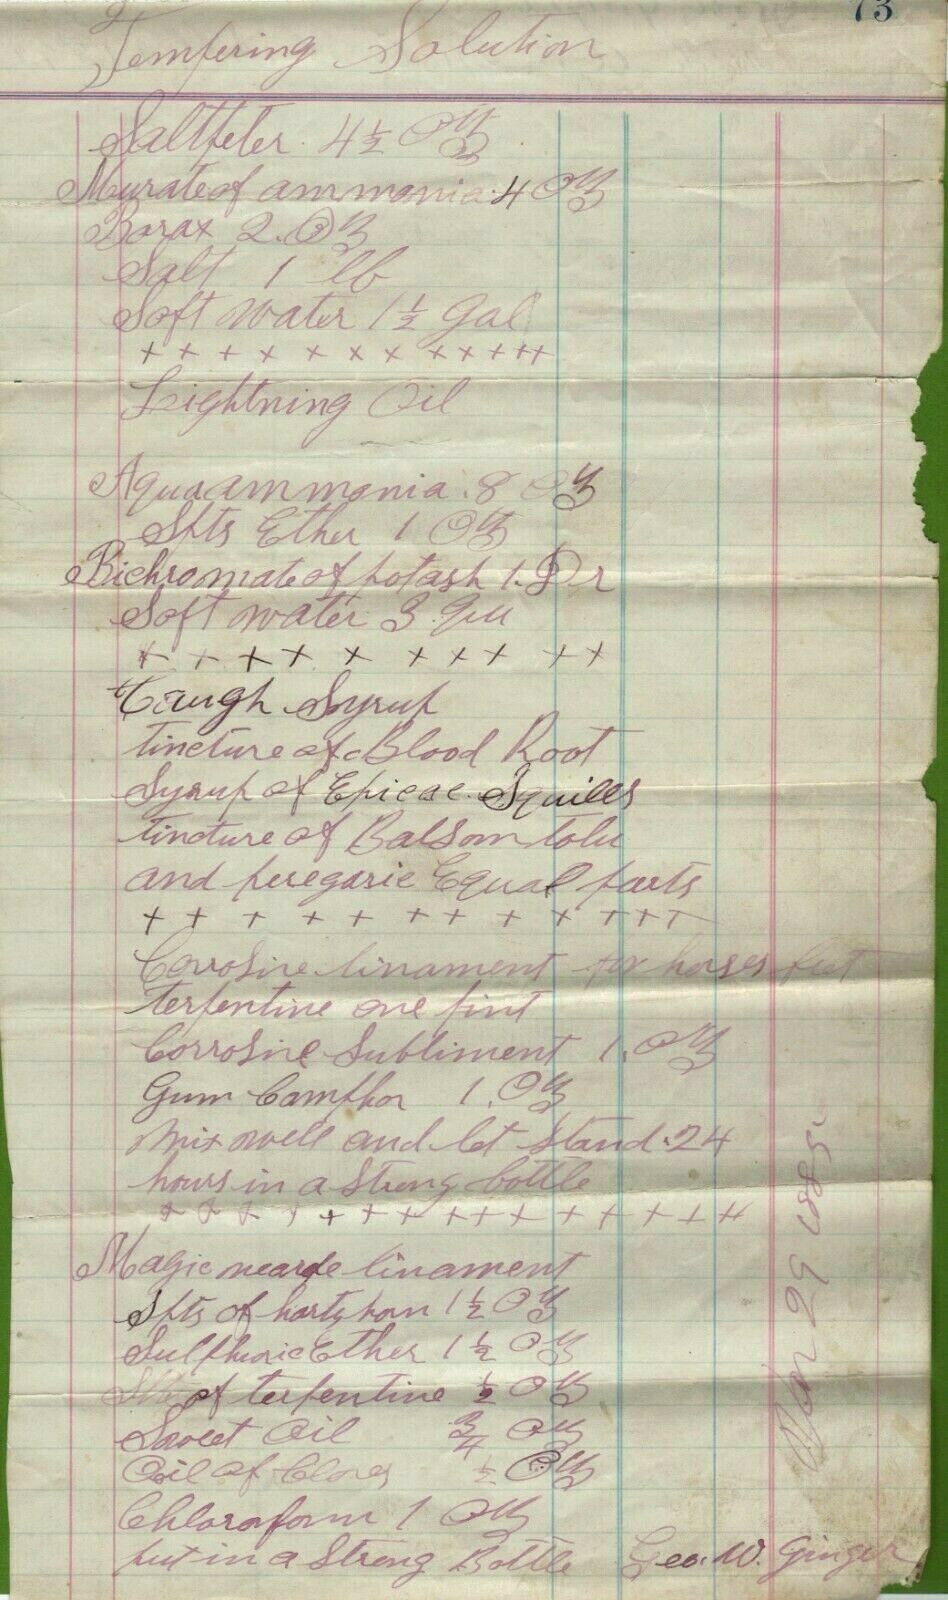 73
Tempering Solution
Saltpeter 4 1/2 Oz
Murate of ammonia 4 Oz
Borax 2. Oz
Salt 1 lb
Soft water 1 1/2 Gal
+ + + + + + + + + + + +
Lightning Oil
Aqua ammonia . 8 Oz
Spts Ether 1 Oz
Bichromate of potash 1. Dr
Soft water 3
+ + + + + + + + + +
Caugh Syrup
tincture of Blood Root
Syrup of Epicac Squills
tincture of Balsom tolu
and peregaric Equal parts
+ + + + + + + + + + + +
Corrosive linament for horses feet
terpentine one pint
Corrosive Subliment 1. Oz
Gum Camphor 1. Oz
mix well and let stand. 24
hours in a Strong bottle
+ + + + + + + + + + + + + + + +
Magic linament
Spts of hartshorn 1 1/2 Oz
Sulphuric Ether 1 1/2 Oz
of terpentine 1/2 Oz
Sweet Oil 3/4 Oz
Oil of Cloves 1/2 Oz
Chloroform 1 Oz
put in a Strong Bottle Geo. W. Ginger
29 1885